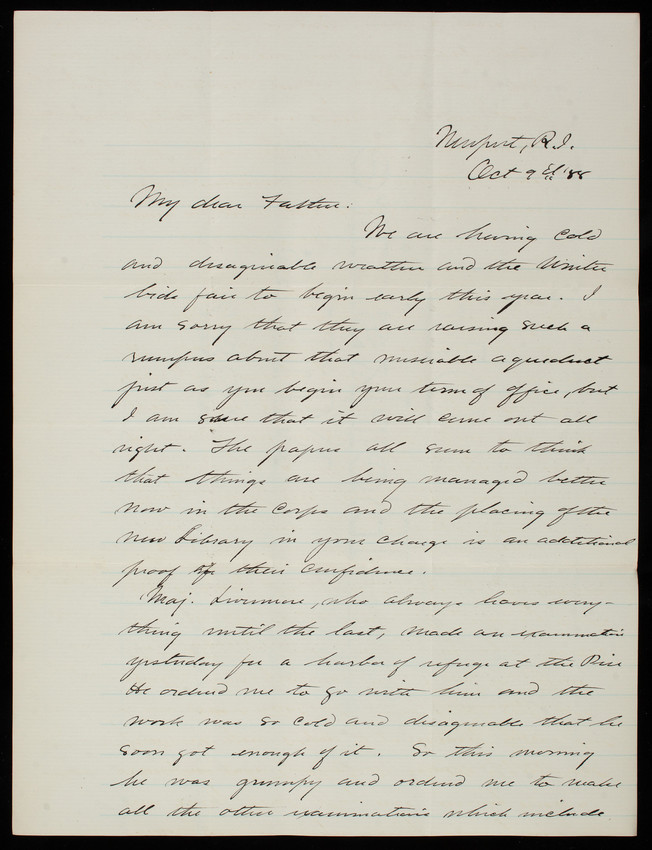 Newport, R.I.
Oct 9th '88
My dear Father:
We are having cold
and disagreeable weather and the Winter
bids fair to begin early this year. I
am sorry that they are raising such a
rumpus about that miserable aqueduct
just as you begin your term of office, but
I am sure that it will come out all
right. The papers all seem to think
that things are being managed better
now in the Corps and the placing of the
new Library in your charge is an additional
proof of their confidence.
Maj. Livermore, who always leaves every-
thing until the last, made an examination
yesterday for a harbor of refuge at the Pier
He ordered me to go with him and the
work was so cold and disagreeable that he
soon got enough of it. So this morning
he was grumpy and ordered me to make
all the other examinations which include